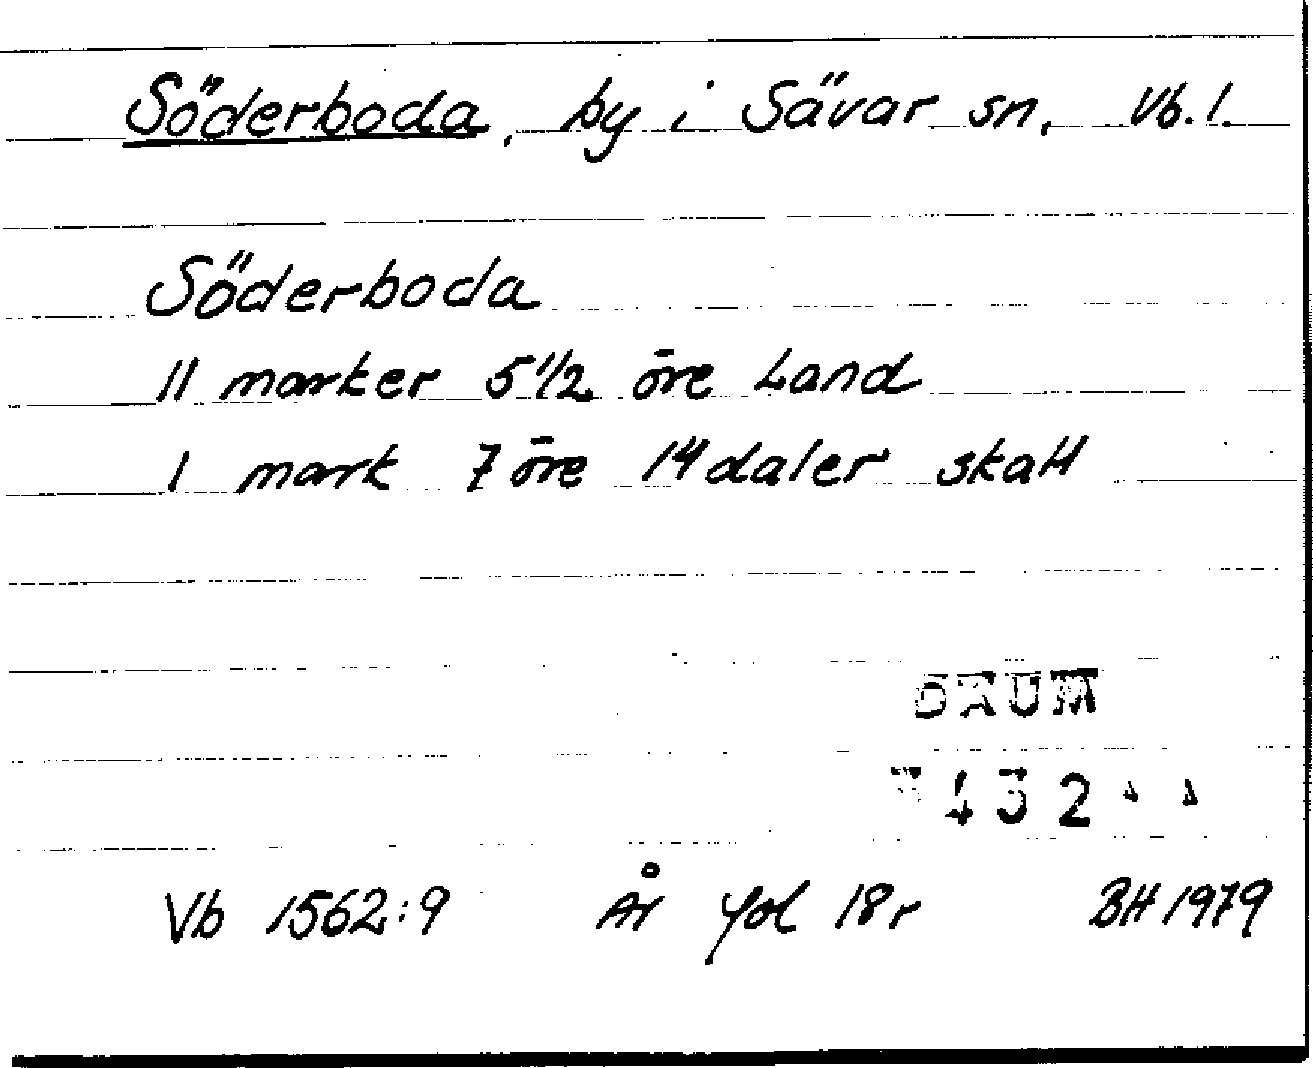 Söderboda, by i Sävar sn, Vb. l.
Söderboda
11 marker 5 1/2 öre Land
1 mark 7 öre 14 daler skatt
DAUM
432
Vb 1562:9 År fol 18 r BH 1979